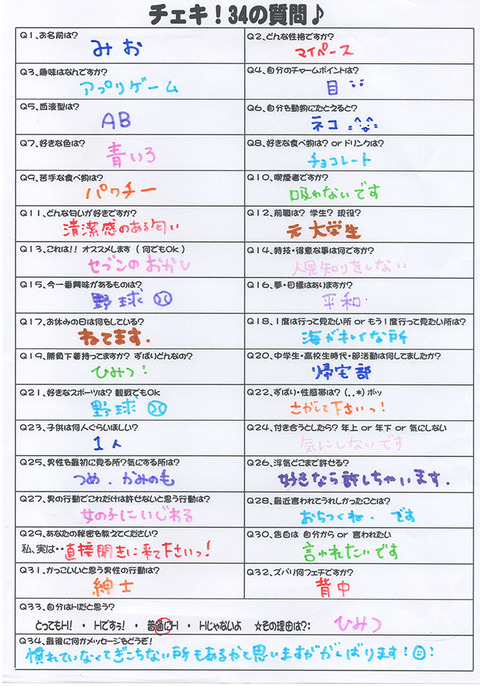 チェキ！34の質問♪
Q1、お名前は？
みお
Q2、どんな性格ですか？
マイペース
Q3、趣味はなんですか？
アプリゲーム
Q4、自分のチャームポイントは？
目
Q5、血液型は？
AB
Q6、自分を動物にたとえると？
ネコ
Q7、好きな色は？
青いろ
Q8、好きな食べ物は？ or ドリンクは？
チョコレート
Q9、苦手な食べ物は？
パクチー
Q10、喫煙者ですか？
吸わないです
Q11、どんな匂いが好きですか？
清潔感のある匂い
Q12、前職は？ 学生？ 現役？
元 大学生
Q13、これは!! オススメします（何でもOk）
セブンのおかし
Q14、特技・得意な事は何ですか？
人見知りをしない
Q15、今一番興味があるものは？
野球
Q16、夢・目標はありますか？
平和
Q17、お休みの日は何をしている？
ねてます。
Q18、1度は行って見たい所 or もう1度行って見たい所は？
海がキレイな所
Q19、勝負下着持ってますか？ ずばりどんなの？
ひみつ！
Q20、中学生・高校生時代・部活動は何してましたか？
帰宅部
Q21、好きなスポーツは？ 観戦でもOK
野球
Q22、ずばり・性感帯は？（．．*）ポッ
さがして下さいっ！
Q23、子供は何人ぐらいほしい？
1人
Q24、付き合うとしたら？ 年上 or 年下 or 気にしない
気にしないです
Q25、男性を最初に見る所？気にする所は？
つめ．かみのも
Q26、浮気どこまで許せる？
好きなら許しちゃいます．
Q27、男の行動でこれだけは許せないと思う行動は？
女の子にいじわる
Q28、最近言われてうれしかったことは？
おちつくね．です
Q29、あなたの秘密を教えてください？
私、実は・・直接聞きに来て下さいっ！
Q30、告白は 自分から or 言われたい
言われたいです
Q31、かっこいいと思う男性の行動は？
紳士
Q32、ズバリ何フェチですか？
背中
Q33、自分はHだと思う？
とってもH!! ・ Hですぅ! ・ 普通にH ・ Hじゃないよ ☆その理由は？： ひみつ
Q34、最後に何かメッセージをどうぞ！
慣れていなくてぎこちない所もあるかと思いますががんばります！